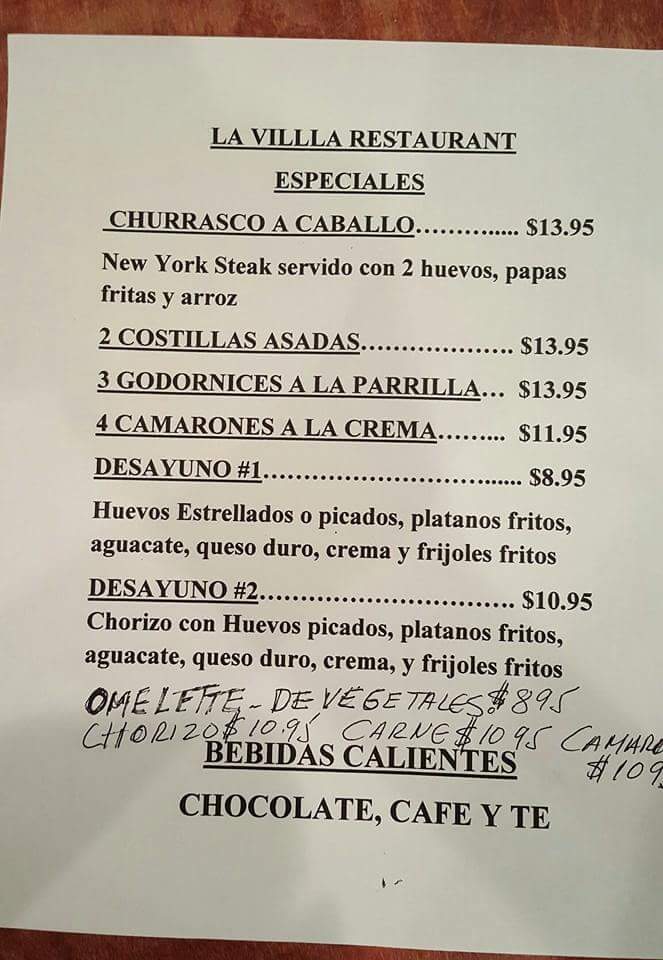 LA VILLLA RESTAURANT
ESPECIALES
CHURRASCO A CABALLO.............. $13.95
New York Steak servido con 2 huevos, papas
fritas y arroz
2 COSTILLAS ASADAS.................... $13.95
3 GODORNICES A LA PARRILLA... $13.95
4 CAMARONES A LA CREMA......... $11.95
DESAYUNO #1.................................... $8.95
Huevos Estrellados o picados, platanos fritos,
aguacate, queso duro, crema y frijoles fritos
DESAYUNO #2.................................. $10.95
Chorizo con Huevos picados, platanos fritos,
aguacate, queso duro, crema, y frijoles fritos
OMELETTE - DE VEGETALES $ 895
CHORIZO $ 10.95 CARNE $ 10 95
BEBIDAS CALIENTES
CHOCOLATE, CAFE Y TE